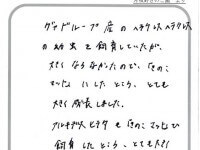 グァドループ産のヘラクレスヘラクレス
の幼虫を飼育していたが、
大きくならなかったので、「きのこ
マット」にしたところ、とても
大きく成長しました。
アルキデスヒラタを「きのこマット」で
飼育したところ、とても大きく